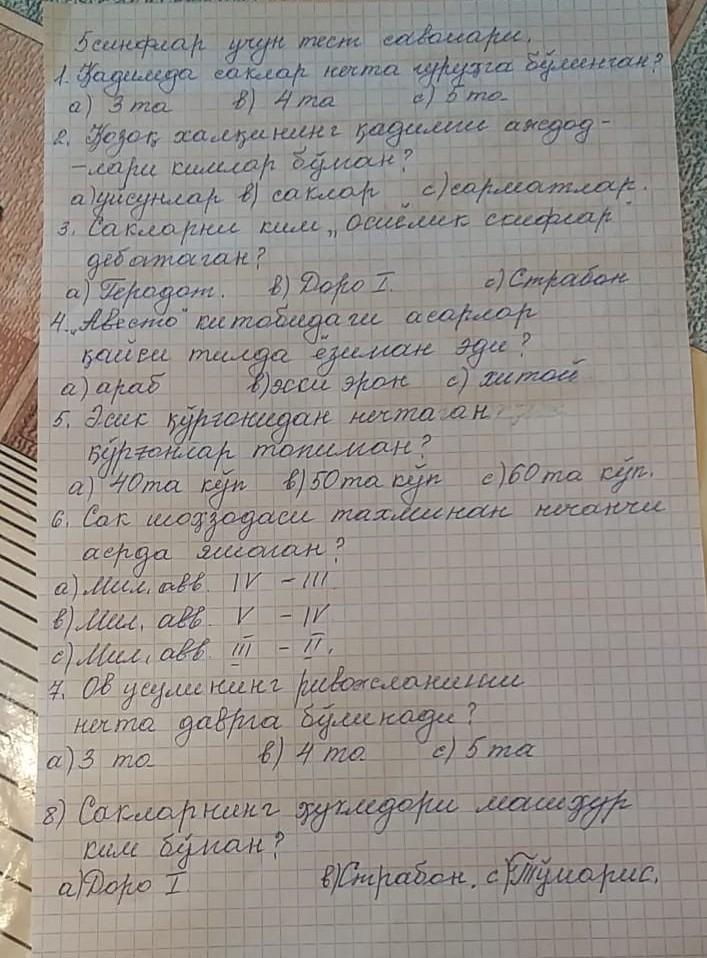 5синфлар учун тест саволлари.
1. Қадимда саклар нечта гуруҳга бўлинган?
а) 3 та в) 4 та с) 5 та
2. Қозоқ халқининг қадимги аждод-
-лари кимлар бўлган?
а) уйсунлар в) саклар с) сарматлар.
3. Сакларни ким „осиёлик скифлар"
деб атаган?
а) Геродот. в) Доро I. с) Страбон
4. „Авесто" китобидаги асарлар
қайси тилда ёзилган эди?
а) араб в) эски эрон с) хитой
5. Эсик қўрғонидан нечта ған
қўрғонлар топилган?
а) 40 та кўп в) 50 та кўп с) 60 та кўп.
6. Сак шоҳзодаси тахминан нечанчи
асрда яшаган?
а) Мил. авв. IV – III
в) Мил. авв. V – IV
с) Мил. авв. III – II.
7. Ов усулининг ривожланиши
нечта даврга бўлинади?
а) 3 та в) 4 та с) 5 та
8) Сакларнинг ҳукмдори машҳур
ким бўлган?
а) Доро I в) Страбон. с) Тўмарис.